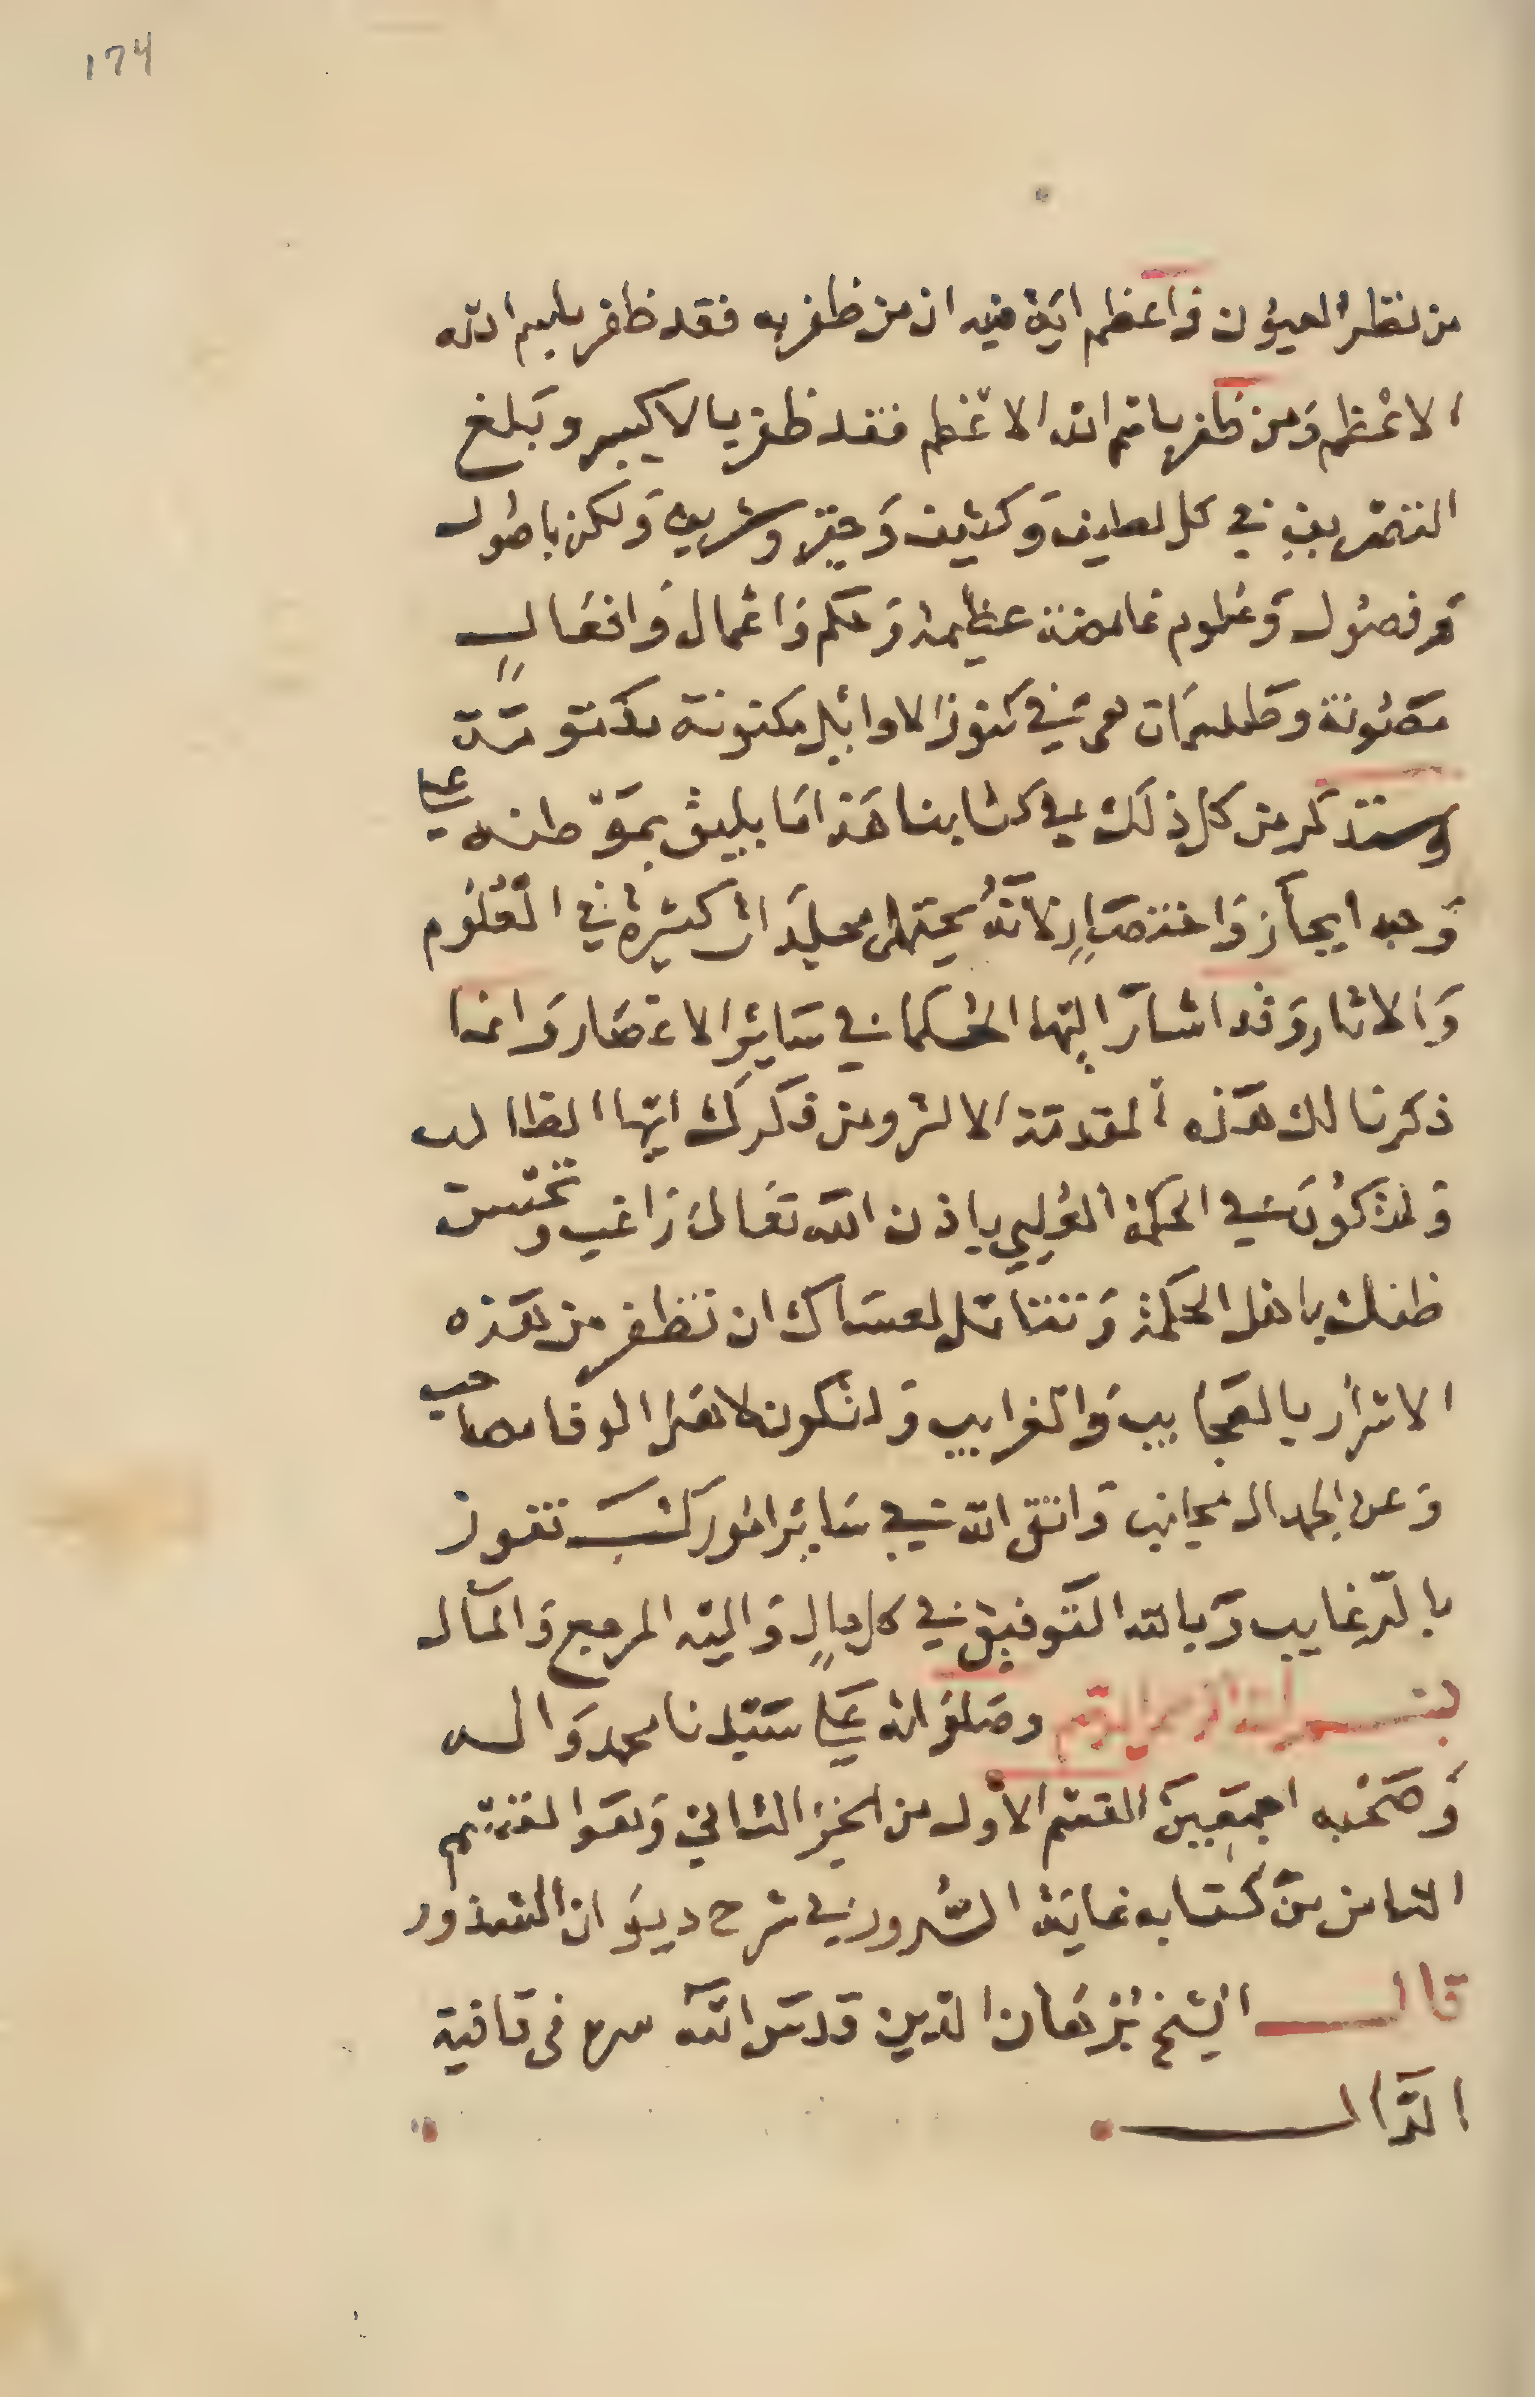 174
من نظر العيون واعظم اية فيه ان من ظفر به فقد ظفر باسم الله
الاعظم ومن ظفر باسم الله الاعظم فقد ظفر بالاكسير وبلغ
التصريف في كل لطيف وكثيف وحقير وشريف ولكن باصول
وفصول وعلوم غامضة عظيمة وحكم واعمال وافعال
مصونة وطلسمات هي في كنوز الاوايل مكنونة مكتومة
وسنذكر من كل ذلك في كتابنا هذا ما يليق بموطنه على
وجه ايجاز واختصار لانه يحتمل مجلدات كثيرة في العلوم
والاثار وقد اشار اليها الحكما في ساير الاعصار وانما
ذكرنا لك هذه المقدمة الا لتروض فكرك ايها الطالب
ولتكون في الحكمة العليا باذن الله تعالى راغب وتحسن
ظنك باهل الحكمة وتتناقل لعساك ان تظفر من هذه
الاسرار بالعجايب والغرايب ولتكون لاهل الوفا مصاحب
وعن الجدال مجانب واتق الله في ساير امورك تفوز
بالرغايب وبالله التوفيق في كل حال واليه المرجع والمآل
بسم الله الرحمن الرحيم وصلى الله على سيدنا محمد واله
وصحبه اجمعين القسم الاول من الجز الثاني وهو القسم
الثامن من كتاب غاية السرور في شرح ديوان الشذور
قال الشيخ برهان الدين قدس الله سره في قافية
الدال